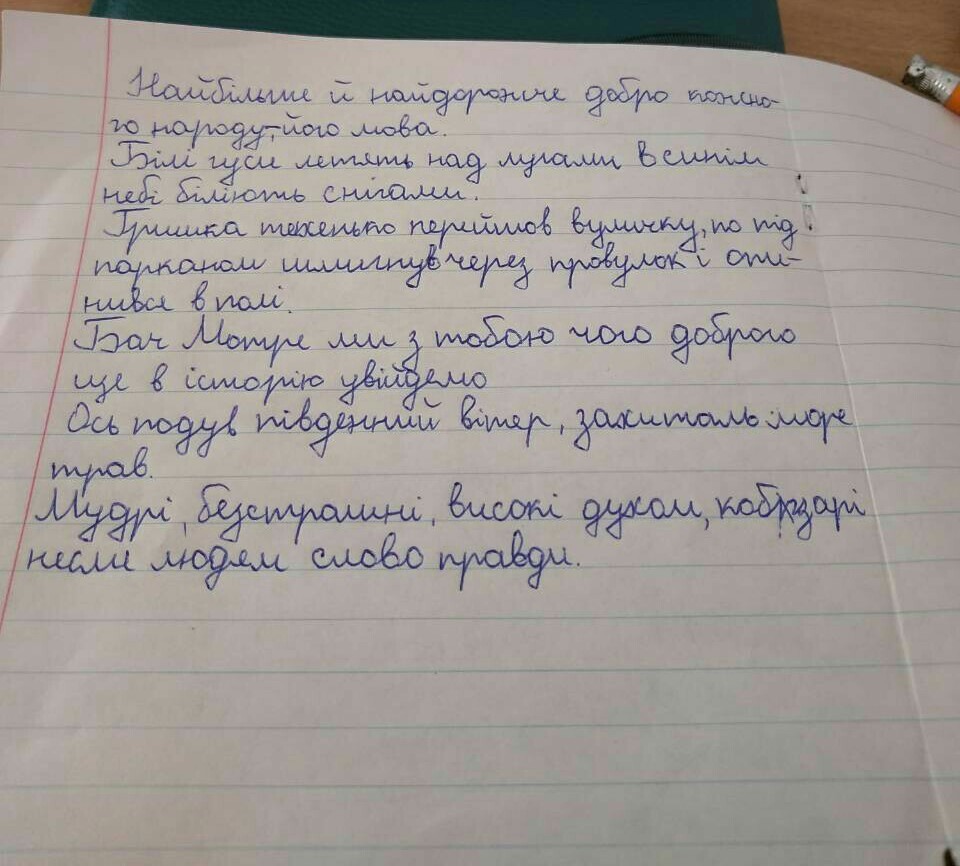 Найбільше й найдорожче добро кожно-
го народу,-його мова.
Білі гуси летять над лугами в синім
небі біліють снігами.
Гришка тихенько перейшов вуличку, по під
парканом шмигнув через провулок і опи-
нився в полі.
Бач Мотре ми з тобою чого доброго
ще в історію увійдемо
Ось подув південний вітер, захиталь море
трав.
Мудрі, безстрашні, високі духом, кобзарі
несли людям слово правди.